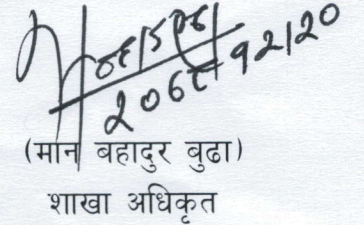 २०६९।१२।२०
(मान बहादुर बुढा)
शाखा अधिकृत